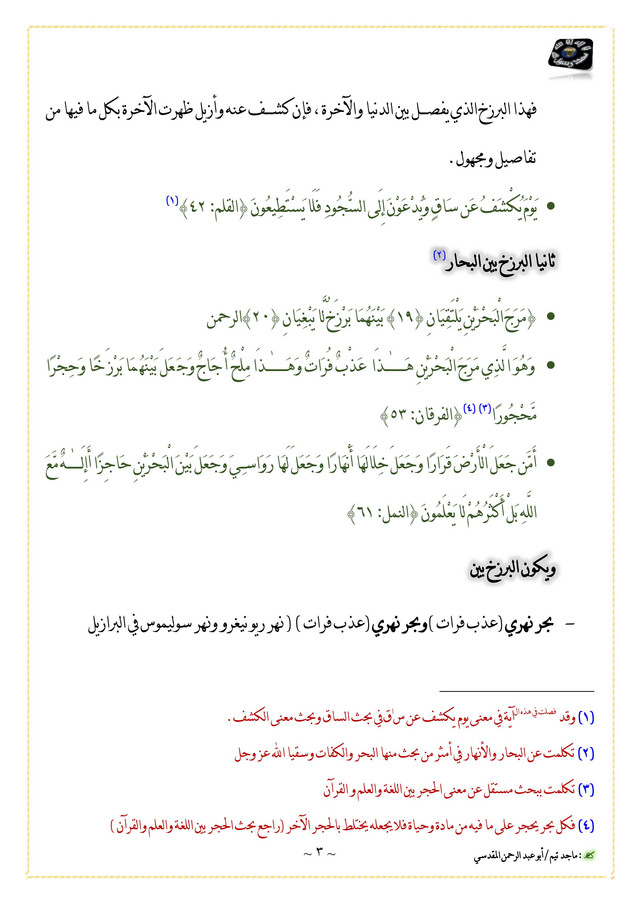 فهذا البرزخ الذي يفصل بين الدنيا والآخرة ، فإن كشف عنه وأزيل ظهرت الآخرة بكل ما فيها من
تفاصيل ومجهول .
• يَوْمَ يُكْشَفُ عَن سَاقٍ وَيُدْعَوْنَ إِلَى السُّجُودِ فَلَا يَسْتَطِيعُونَ ﴿القلم: ٤٢﴾(١)
ثانيا البرزخ بين البحار(٢)
• ﴿مَرَجَ الْبَحْرَيْنِ يَلْتَقِيَانِ ﴿١٩﴾ بَيْنَهُمَا بَرْزَخٌ لَّا يَبْغِيَانِ ﴿٢٠﴾الرحمن
• وَهُوَ الَّذِي مَرَجَ الْبَحْرَيْنِ هَـٰذَا عَذْبٌ فُرَاتٌ وَهَـٰذَا مِلْحٌ أُجَاجٌ وَجَعَلَ بَيْنَهُمَا بَرْزَخًا وَحِجْرًا
مَّحْجُورًا(٣) (٤)﴿الفرقان: ٥٣﴾
• أَمَّن جَعَلَ الْأَرْضَ قَرَارًا وَجَعَلَ خِلَالَهَا أَنْهَارًا وَجَعَلَ لَهَا رَوَاسِيَ وَجَعَلَ بَيْنَ الْبَحْرَيْنِ حَاجِزًا أَإِلَـٰهٌ مَّعَ
اللَّهِ بَلْ أَكْثَرُهُمْ لَا يَعْلَمُونَ ﴿النمل: ٦١﴾
ويكون البرزخ بين
– بحر نهري (عذب فرات )وبحر نهري (عذب فرات ) ( نهر ريو نيغرو ونهر سوليموس في البرازيل
(١) وقد فصلت في هذه الآية في معنى يوم يكشف عن ساق في بحث الساق وبحث معنى الكشف .
(٢) تكلمت عن البحار والأنهار في أمثر من بحث منها البحر والكفات وسقيا الله عز وجل
(٣) تكلمت ببحث مستقل عن معنى الحجر بين اللغة والعلم و القرآن
(٤) فكل بحر يحجر على ما فيه من مادة وحياة فلا يجعله يختلط بالحجر الآخر (راجع بحث الحجر بين اللغة والعلم والقرآن )
: ماجد تيم / أبو عبد الرحمن المقدسي
~ ٣ ~